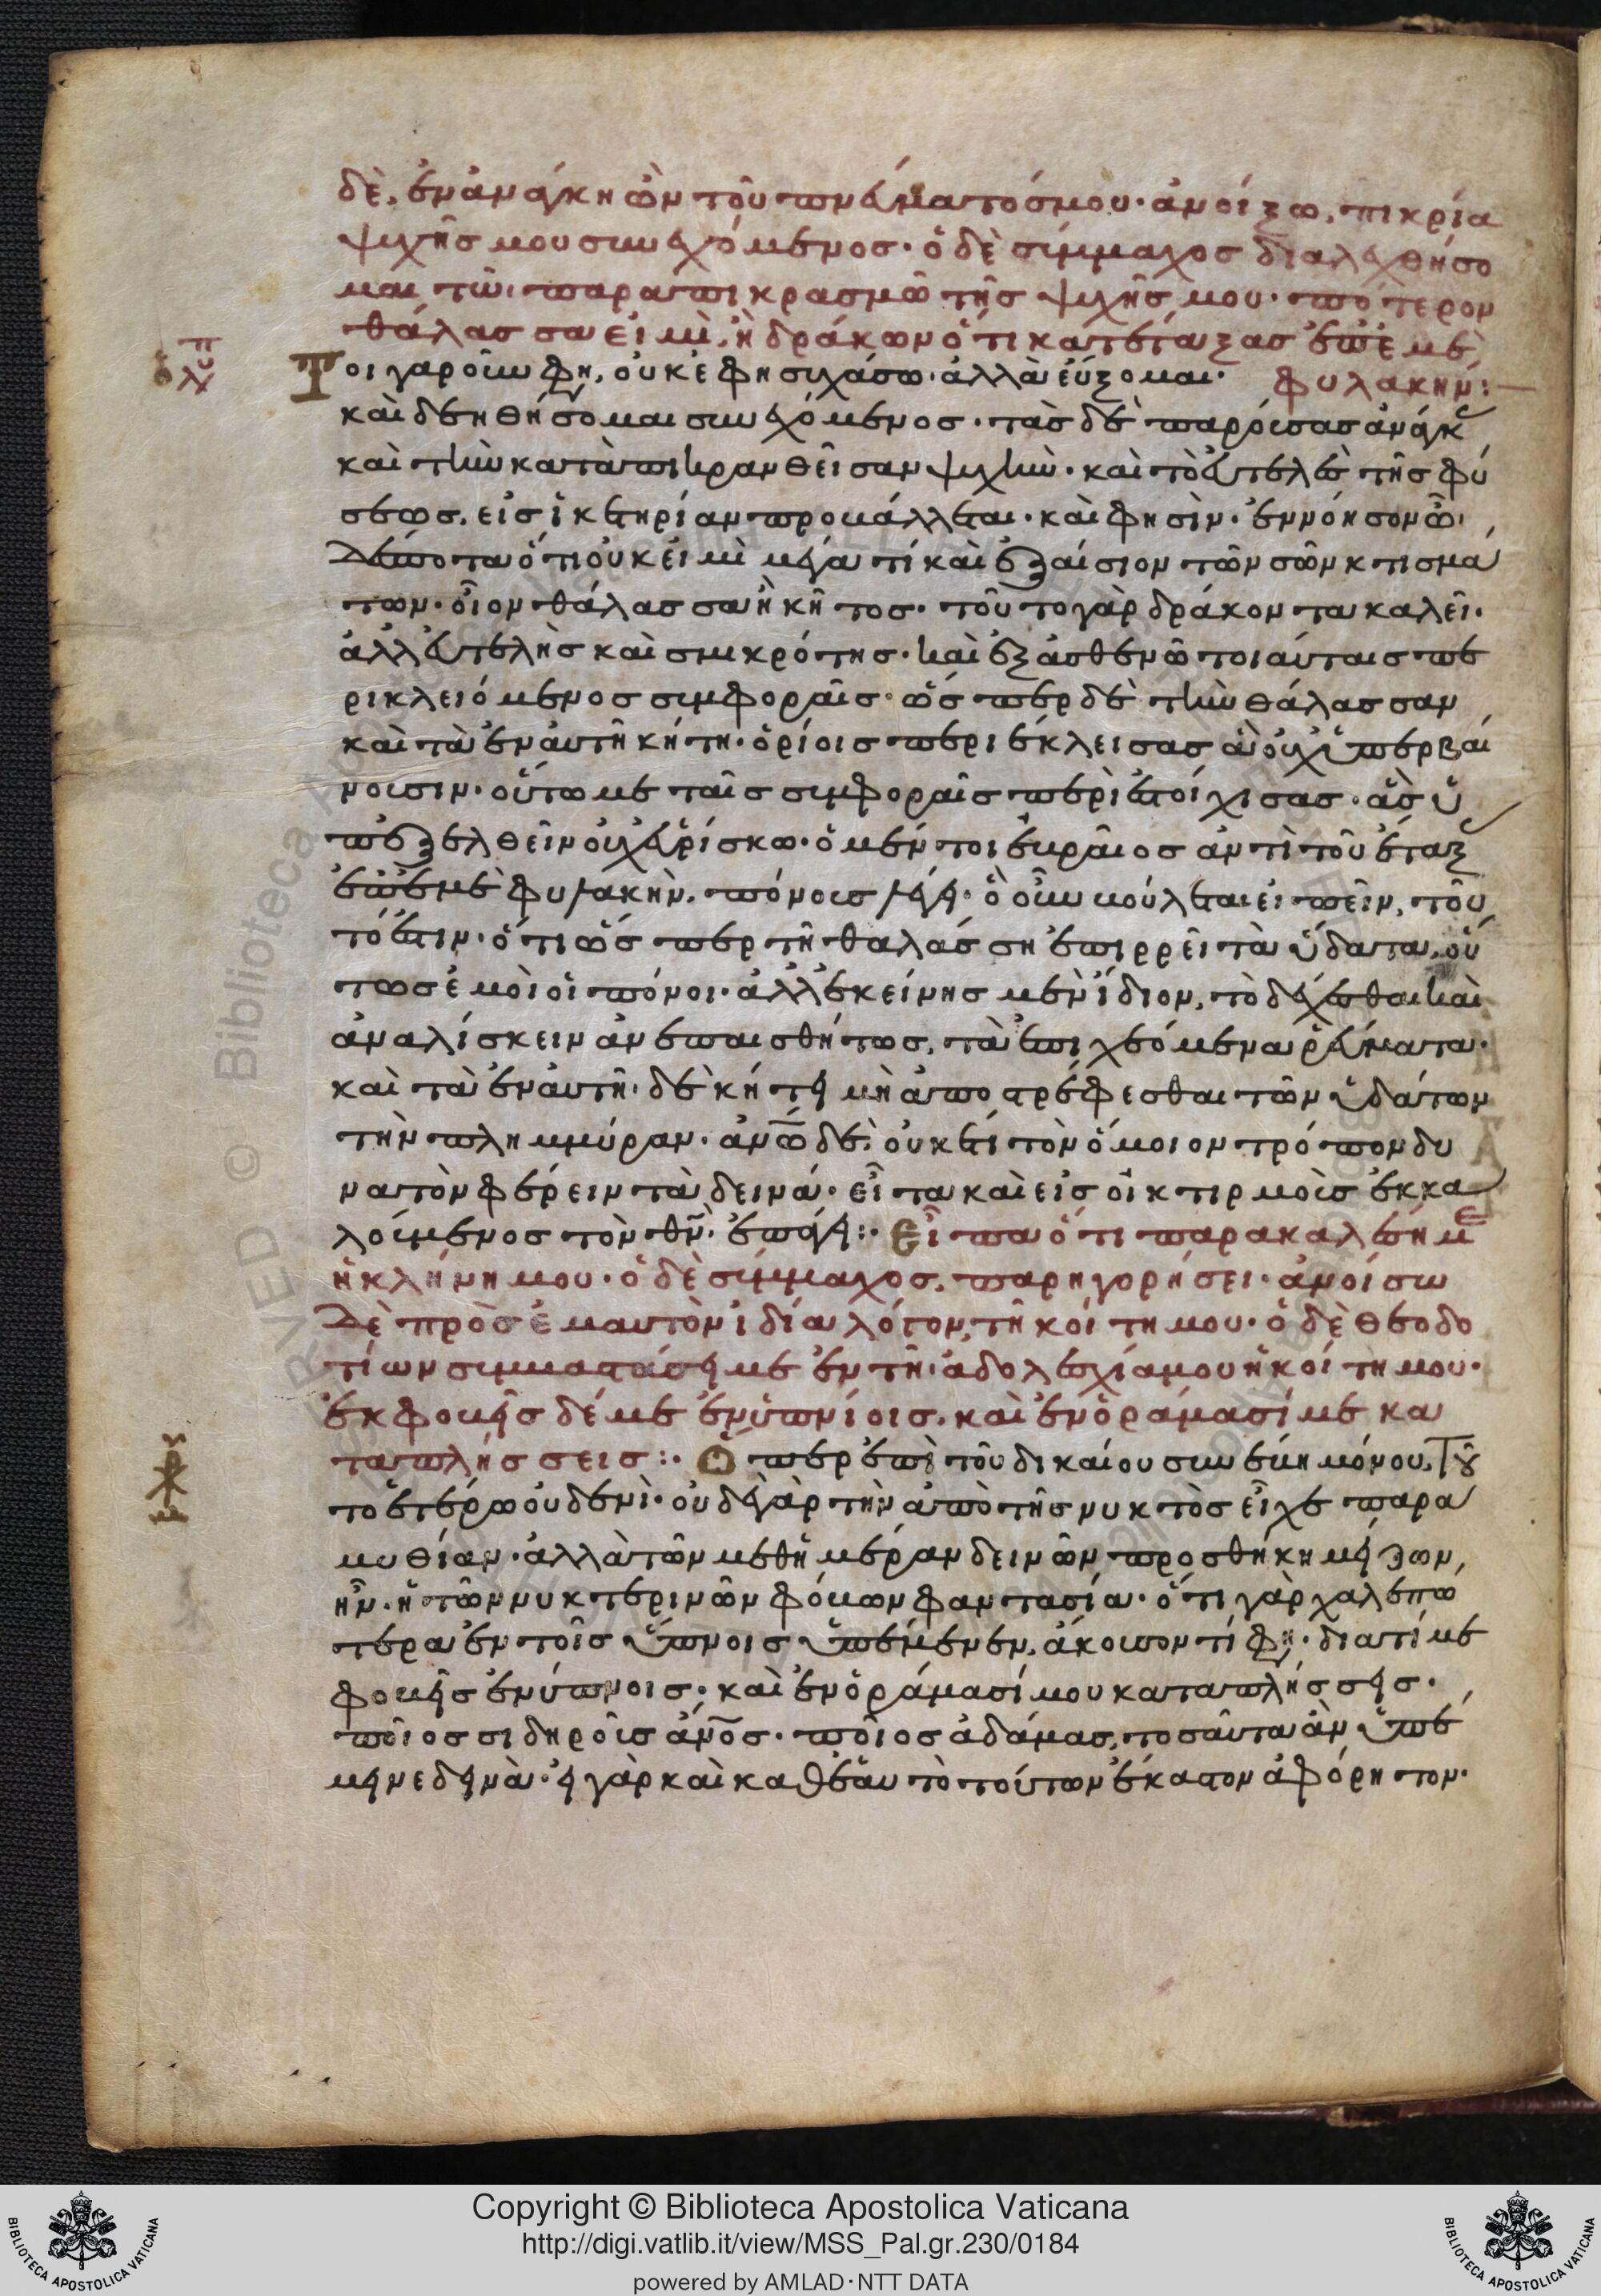 δὲ, ἐν ἀνάγκη ὢν τοῦ πνεύματός μου· ἀνοίξω, πικρία
ψυχῆς μου συνεχόμενος· ὁ δὲ σύμμαχος διαλεχθήσο
μαι τῶι παραπικρασμῶ τῆς ψυχῆς μου· πότερον
θάλασσα εἰμὶ, ἢ δράκων ὅτι κατέταξας ἐπ' ἐμὲ
φυλακήν:
Τοιγαροῦν φη, οὐκ ἔφη συχάσω· ἀλλὰ εὔξομαι·
καὶ δεηθήσομαι συνεχόμενος· τὰς δὲ παρούσας ἀνάγκ
καὶ τὴν καταπικρανθεῖσαν ψυχὴν· καὶ τὸ εὐτελὲς τῆς φύ
σεως, εἰς ἱκετηρίαν προβάλλεται· καὶ φησὶν· ἐννόησον ὦ
δέσποτα ὅτι οὐκ εἰμὶ μέγα τί καὶ ἐξαίσιον τῶν σῶν κτισμά
των· οἷον θάλασσα ἢ κῆτος· τοῦτο γὰρ δράκοντα καλεῖ·
ἀλλ' εὐτελὴς καὶ σμικρότης· καὶ ἐξασθενῶ τοιαύταις πε
ρικλειόμενος συμφοραῖς· ὥσπερ δὲ τὴν θάλασσαν
καὶ τὰ ἐν αὐτῆ κήτη· ὁρίοις περιέκλεισας ἃ οὐχ ὑπερβαί
νουσιν· οὕτω με ταῖς συμφοραῖς περιετοίχισας· ἃς ὑ
πεξελθεῖν οὐχ εὑρίσκω· ὁ μέντοι ἑβραῖος ἀντὶ τοῦ ἔταξ
ἐπ' ἐμὲ φυλακὴν, πόνους λέγει· ὃ οὖν βούλεται εἰπεῖν, τοῦ
τό ἐστιν· ὅτι ὥσπερ τῆ θαλάσση ἐπιρρεῖ τὰ ὕδατα, οὕ
τως ἐμοὶ οἱ πόνοι· ἀλλ' ἐκείνης μὲν ἴδιον, τὸ δέχεσθαι καὶ
ἀναλίσκειν ἀνεπαισθήτως, τὰ ἐπιχεόμενα ῥεύματα·
καὶ τὰ ἐν αὐτῆ δὲ κήτει μὴ ἀποστρέφεσθαι τῶν ὑδάτων
τὴν πλημμύραν· ἀνῶ δὲ, οὐκ ἔτι τὸν ὅμοιον τρόπον δυ
νατὸν φέρειν τὰ δεινά· εἶτα καὶ εἰς οἰκτιρμοὺς ἐκκα
λούμενος τὸν θν, ἐπάγει:· Εἶπα ὅτι παρακαλέσει με
ἡ κλήνη μου· ὁ δὲ σύμμαχος, παρηγορήσει· ἀνοίσω
δὲ πρὸς ἐμαυτὸν ἰδία λόγον, τῆ κοίτη μου· ὁ δὲ θεοδο
τίων συμμαστάσει με ἐν τῆ ἀδολεσχία μου ἡ κοίτη μου·
ἐκφοβεῖς δέ με ἐνυπνίοις, καὶ ἐν ὁράμασί με κα
ταπλήσσεις:· Ὅπερ ἐπὶ τοῦ δικαίου συνέβη μόνου, του
το ἑτέρω οὐδενὶ· οὐδὲ γὰρ τὴν ἀπὸ τῆς νυκτὸς εἶχε παρα
μυθίαν· ἀλλὰ τῶν μεθημέραν δεινῶν προσθήκη μείζων,
ἦν· ἡ τῶν νυκτερινῶν φόβων φαντασία· ὅτι γὰρ χαλεπώ
τερα ἐν τοῖς ὕπνοις ὑπέμενεν, ἄκουσον τί φη· διατί με
φοβεῖς ἐν ὕπνοις· καὶ ἐν ὁράμασί μου καταπλήσσεις·
ποῖος σιδηροῦς ἀνος· ποῖος ἀδάμας, τοσαῦτα ἂν ὑπέ
μεινε δεινὰ· εἰ γὰρ καὶ καθ' ἑαυτὸ τούτων ἕκαστον ἀφόρητον·
Copyright © Biblioteca Apostolica Vaticana
http://digi.vatlib.it/view/MSS_Pal.gr.230/0184
powered by AMLAD·NTT DATA